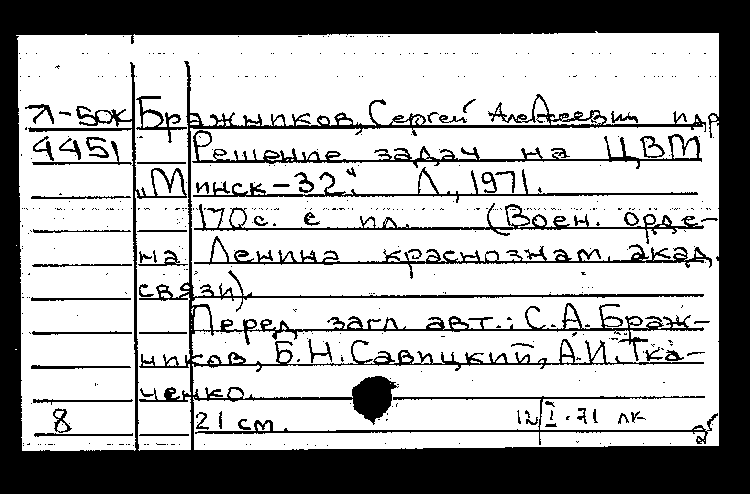 Л-50К Бражников, Сергей Алексеевич и др
4451 Решение задач на ЦВМ
„Минск-32“. Л., 1971.
170с. с ил. (Воен. орде-
на Ленина краснознам. акад.
связи).
Перед загл. авт.: С.А. Браж-
ников, Б.Н. Савицкий, А.И. Тка-
ченко.
8 21 см. 12/I-71 лк